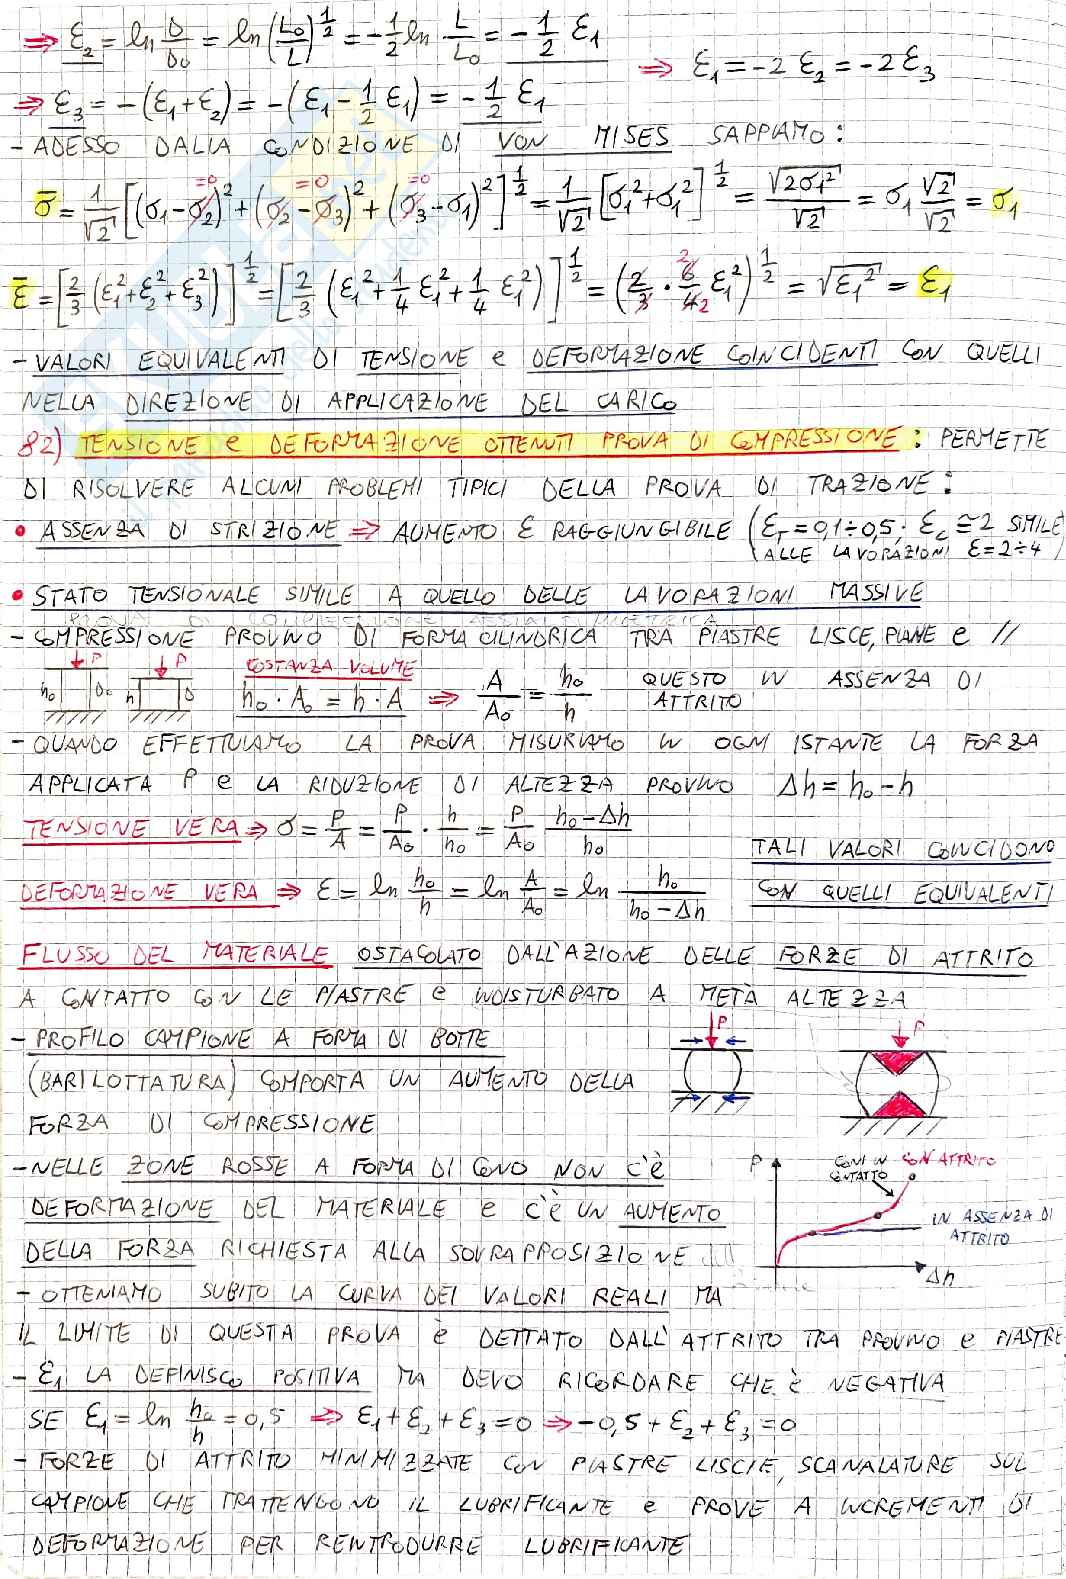 ⇒ ε₂ = ln D/D₀ = ln (L₀/L)^½ = -½ ln L/L₀ = -½ ε₁
⇒ ε₁ = -2 ε₂ = -2 ε₃
⇒ ε₃ = -(ε₁+ε₂) = -(ε₁ - ½ ε₁) = -½ ε₁
- ADESSO DALLA CONDIZIONE DI VON MISES SAPPIAMO:
σ̅ = 1/√2 [(σ₁-σ₂)² + (σ₂-σ₃)² + (σ₃-σ₁)²]^½ = 1/√2 [σ₁²+σ₁²]^½ = √2σ₁²/√2 = σ₁ √2/√2 = σ₁
=0 =0 =0
ε̅ = [2/3 (ε₁²+ε₂²+ε₃²)]^½ = [2/3 (ε₁²+¼ ε₁²+¼ ε₁²)]^½ = (2/3 · 6/4 ε₁²)^½ = √ε₁² = ε₁
- VALORI EQUIVALENTI DI TENSIONE e DEFORMAZIONE COINCIDENTI CON QUELLI
NELLA DIREZIONE DI APPLICAZIONE DEL CARICO
82) TENSIONE e DEFORMAZIONE OTTENUTI PROVA DI COMPRESSIONE: PERMETTE
DI RISOLVERE ALCUNI PROBLEMI TIPICI DELLA PROVA DI TRAZIONE:
• ASSENZA DI STRIZIONE ⇒ AUMENTO ε RAGGIUNGIBILE (ε_T = 0,1÷0,5; ε_C ≅ 2 SIMILE
ALLE LAVORAZIONI ε = 2÷4)
• STATO TENSIONALE SIMILE A QUELLO DELLE LAVORAZIONI MASSIVE
- COMPRESSIONE PROVINO DI FORMA CILINDRICA TRA PIASTRE LISCE, PIANE e //
P P COSTANZA VOLUME
h₀ D₀ h D h₀ · A₀ = h · A ⇒ A/A₀ = h₀/h QUESTO IN ASSENZA DI
ATTRITO
- QUANDO EFFETTUIAMO LA PROVA MISURIAMO IN OGNI ISTANTE LA FORZA
APPLICATA P e LA RIDUZIONE DI ALTEZZA PROVINO Δh = h₀ - h
TENSIONE VERA ⇒ σ = P/A = P/A₀ · h/h₀ = P/A₀ h₀-Δh/h₀
TALI VALORI COINCIDONO
DEFORMAZIONE VERA ⇒ ε = ln h₀/h = ln A/A₀ = ln h₀/h₀-Δh
CON QUELLI EQUIVALENTI
FLUSSO DEL MATERIALE OSTACOLATO DALL'AZIONE DELLE FORZE DI ATTRITO
A CONTATTO CON LE PIASTRE e INDISTURBATO A METÀ ALTEZZA
- PROFILO CAMPIONE A FORMA DI BOTTE
P P
(BARILOTTATURA) COMPORTA UN AUMENTO DELLA
FORZA DI COMPRESSIONE
- NELLE ZONE ROSSE A FORMA DI CONO NON C'È
DEFORMAZIONE DEL MATERIALE e C'È UN AUMENTO
DELLA FORZA RICHIESTA ALLA SOVRAPPOSIZIONE
P CONI IN CONTATTO CON ATTRITO
IN ASSENZA DI ATTRITO
Δh
- OTTENIAMO SUBITO LA CURVA DEI VALORI REALI MA
IL LIMITE DI QUESTA PROVA È DETTATO DALL'ATTRITO TRA PROVINO e PIASTRE
- ε₁ LA DEFINISCO POSITIVA MA DEVO RICORDARE CHE È NEGATIVA
SE ε₁ = ln h₀/h = 0,5 ⇒ ε₁+ε₂+ε₃ = 0 ⇒ -0,5+ε₂+ε₃ = 0
- FORZE DI ATTRITO MINIMIZZATE CON PIASTRE LISCIE, SCANALATURE SUL
CAMPIONE CHE TRATTENGONO IL LUBRIFICANTE e PROVE A INCREMENTI DI
DEFORMAZIONE PER REINTRODURRE LUBRIFICANTE